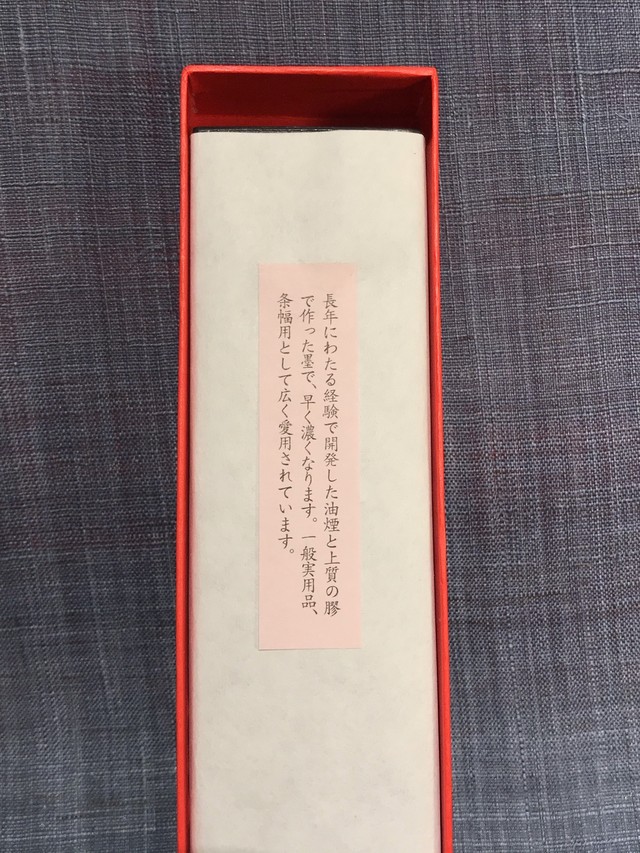 長年にわたる経験で開発した油煙と上質の膠
で作った墨で、早く濃くなります。一般実用品、
条幅用として広く愛用されています。